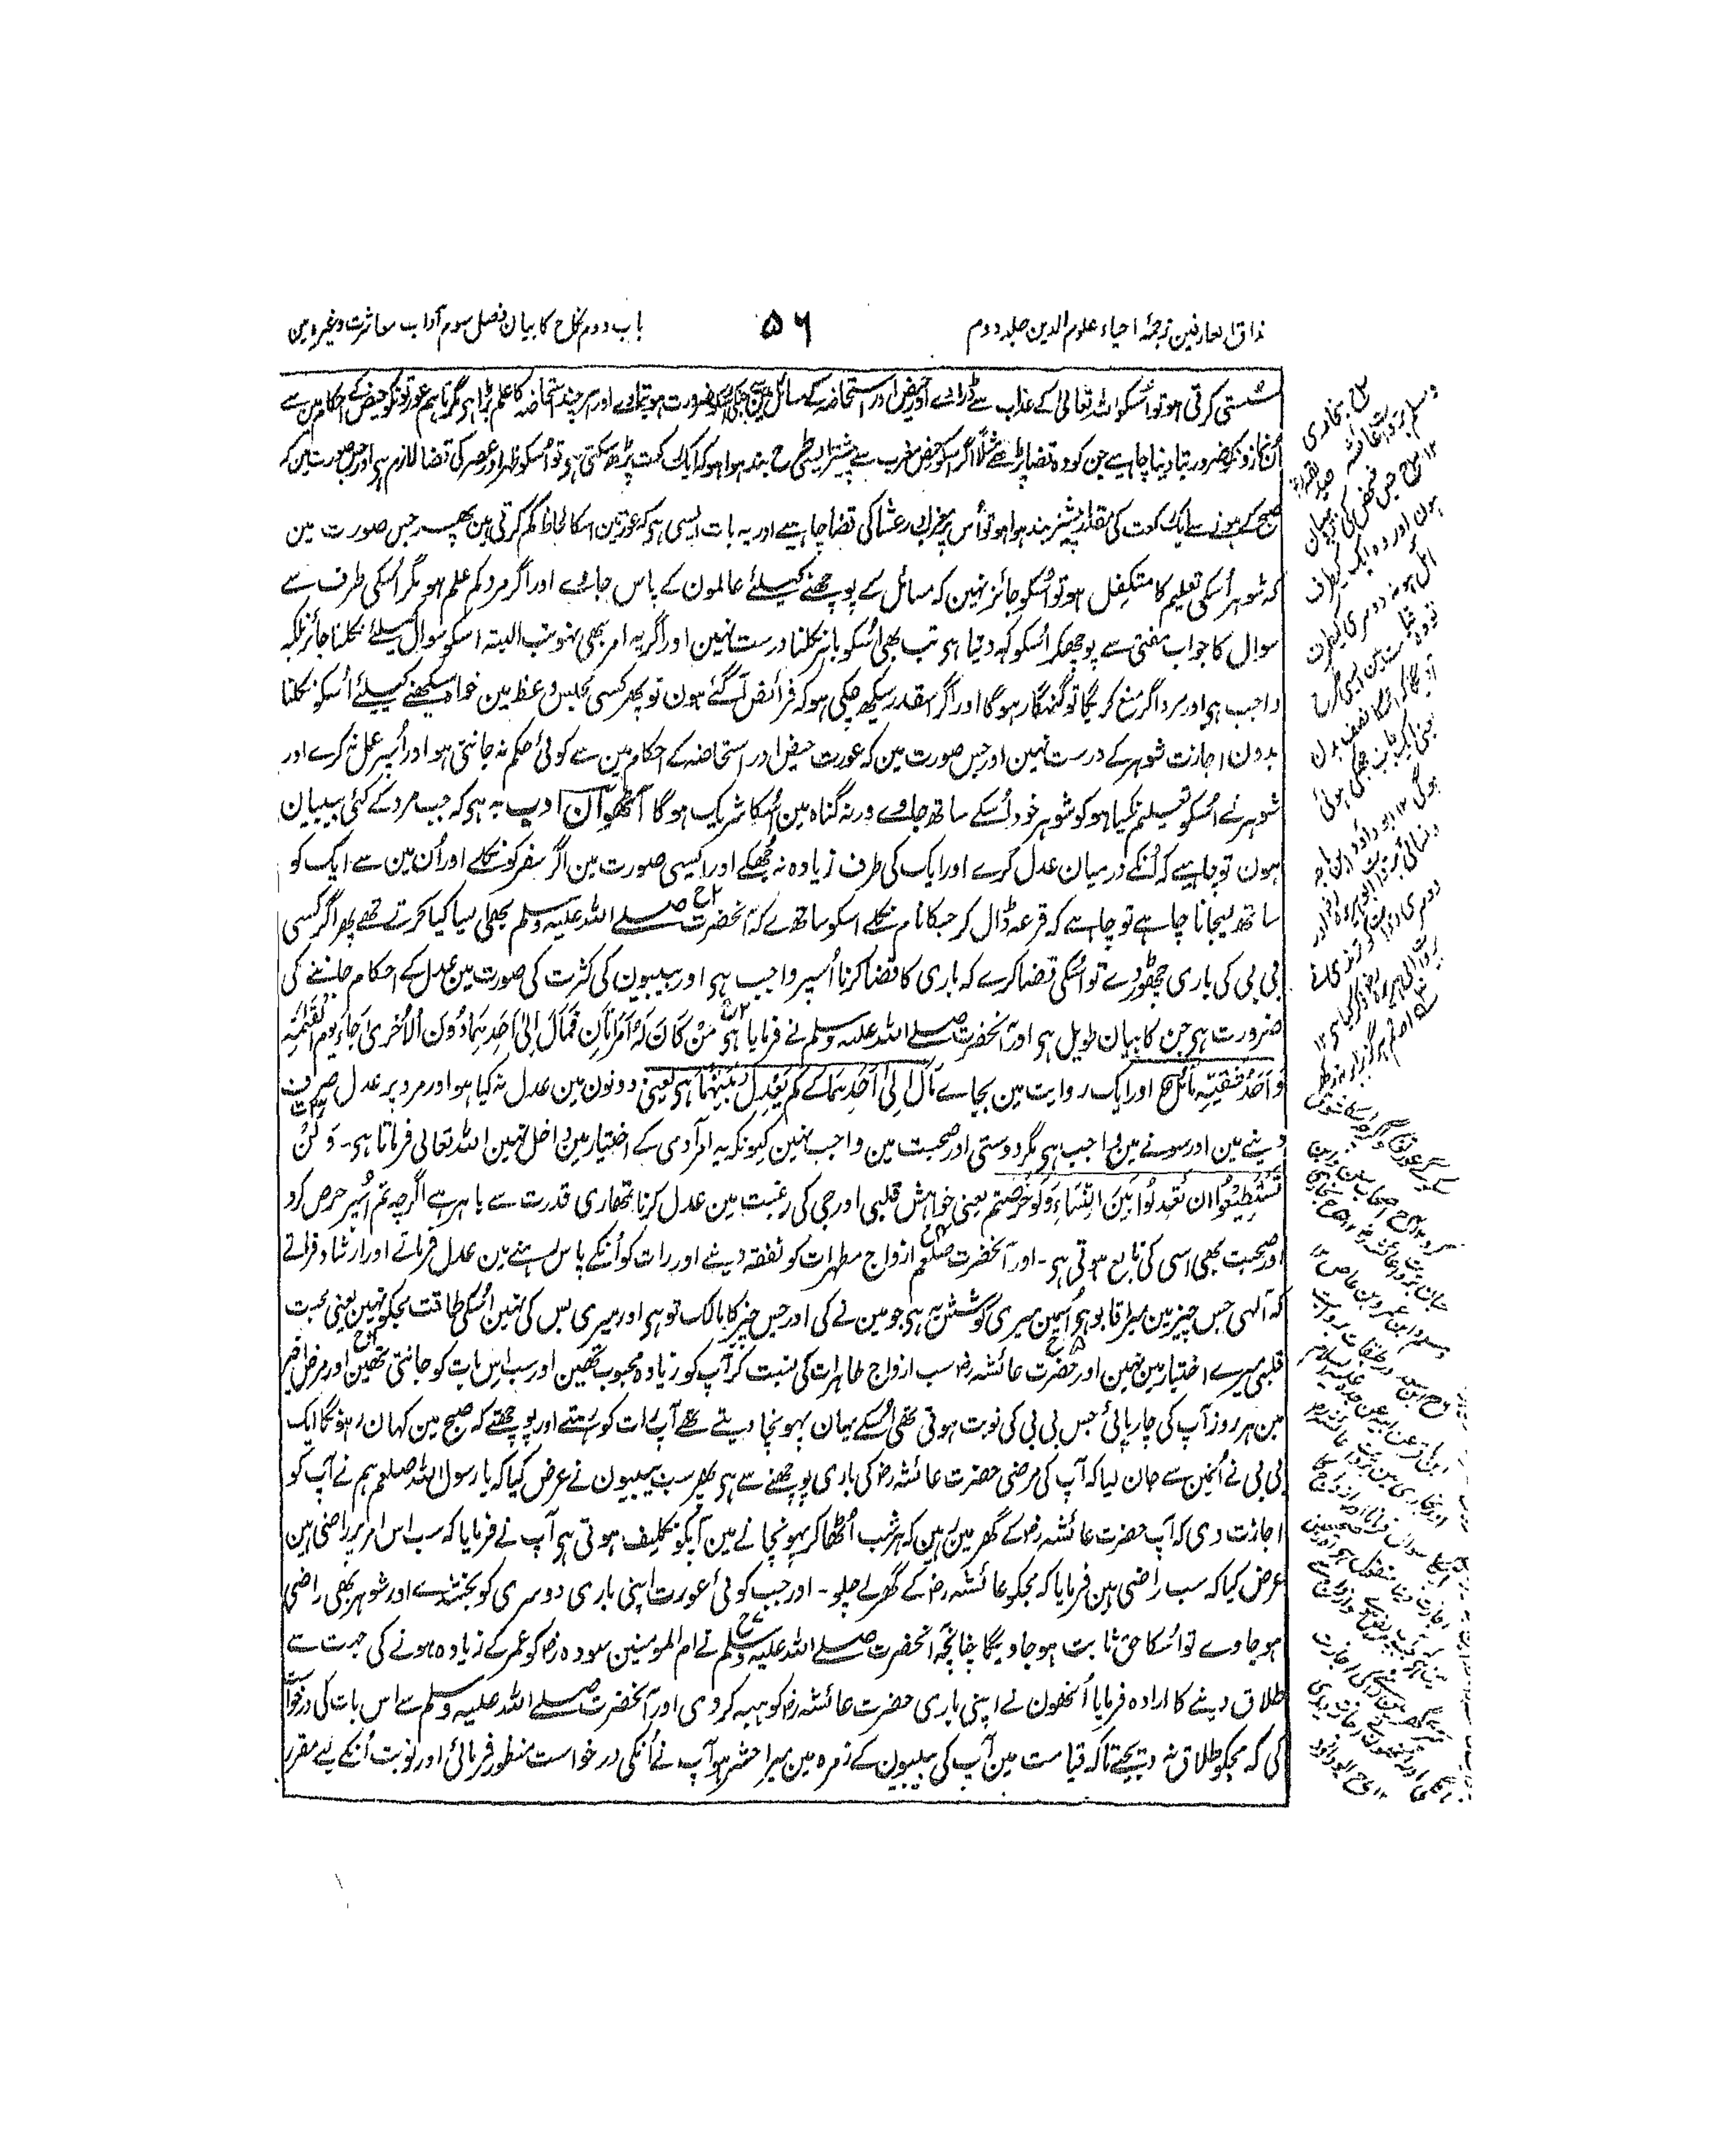 مذاق العارفین ترجمۂ احیاء علوم الدین جلد دوم
۵۶
باب دوم نکاح کا بیان فصل سوم آداب معاشرت وغیرہ مین
سُستی کرتی ہو تو اُسکو اللہ تعالیٰ کے عذاب سے ڈراوے اور حیض اور استحاضہ کے مسائل مین سے جسکی اُسکو ضرورت ہو بتاوے اور ہر چند استحاضہ کا علم بڑا ہی مگر تاہم عورتونکو حیض کے احکام مین سے
اُن نمازونکو ضرور بتا دینا چاہیے جن کو وہ قضا پڑھے مثلاً اگر اسکو حیض مغرب سے پیشتر ایسی طرح بند ہوا ہو کہ ایک رکعت پڑھ سکتی ہو تو اُسکو ظہر اور عصر کی قضا لازم ہی اور جس صورت مین کہ
صبح کے ہونے سے ایک رکعت کی مقدار پیشتر بند ہوا ہو تو اُس پر مغرب اور عشا کی قضا چاہیے اور یہ بات ایسی ہی کہ عورتین اسکا لحاظ کم کرتی ہین پھر جس صورت مین
کہ شوہر اُسکی تعلیم کا متکفل ہو تو اُسکو جائز نہین کہ مسائل کے پوچھنے کیلئے عالمون کے پاس جاوے اور اگر مرد کم علم ہو مگر اُسکی طرف سے
سوال کا جواب مفتی سے پوچھکر اُسکو کہہ دیتا ہی تب بھی اُسکو باہر نکلنا درست نہین اور اگر یہ امر بھی نہو تب البتہ اسکو سوال کیلئے نکلنا جائز بلکہ
واجب ہی اور مرد اگر منع کریگا تو گنہگار ہوگا اور اگر اسقدر سیکھ چکی ہو کہ فرائض آگئے ہون تو پھر کسی مجلس وعظ مین خواہ سیکھنے کیلئے اُسکو نکلنا
بدون اجازت شوہر کے درست نہین اور جس صورت مین کہ عورت حیض اور استحاضہ کے احکام مین سے کوئی حکم نہ جانتی ہو اور اُسپر عمل نہ کرے اور
شوہر نے اُسکو تعلیم نکیا ہو تو شوہر خود اُسکے ساتھ جاوے ورنہ گناہ مین اُسکا شریک ہوگا آٹھوان ادب یہ ہی کہ جب مرد کے کئی بیبیان
ہون تو چاہیے کہ اُنکے درمیان عدل کرے اور ایک کی طرف زیادہ نہ جُھکے اور ایسی صورت مین اگر سفر کو نکلے اور اُن مین سے ایک کو
ساتھ لیجانا چاہے تو چاہے کہ قرعہ ڈال کر جسکا نام نکلے اسکو ساتھ لے کہ آنحضرت صلے اللہ علیہ وسلم بھی ایسا کیا کرتے تھے پھر اگر کسی
بی بی کی باری چھوڑ دے تو اُسکی قضا کرے کہ باری کا قضا کرنا اُسپر واجب ہی اور بیبیون کی کثرت کی صورت مین عدل کے احکام جاننے کی
ضرورت ہی جن کا بیان طویل ہی اور آنحضرت صلے اللہ علیہ وسلم نے فرمایا ہی مَنْ کَانَ لَہٗ امْرَأتَانِ فَمَالَ اِلیٰ اَحَدِہِمَا دُوْنَ الْاُخْریٰ جَاءَ یَوْمَ الْقِیٰمَۃِ
وَاَحَدُ شِقَّیْہِ مَائِلٌ اور ایک روایت مین بجاے مَالَ اِلیٰ اَحَدِہِمَا کے لَم یَعْدِلْ بَیْنَہُمَا ہی یعنی دونون مین عدل نہ کیا ہو اور مرد پر عدل صرف
دینے مین اور سونے مین واجب ہی مگر دوستی اور صحبت مین واجب نہین کیونکہ یہ امر آدمی کے اختیار مین داخل نہین اللہ تعالی فرماتا ہی۔ وَلَنْ
تَسْتَطِیْعُوْا ان تَعْدِلُوْا بَیْنَ النِّسَاءِ وَلَوْ حَرَصْتُم یعنی خواہش قلبی اور جی کی رغبت مین عدل کرنا تمھاری قدرت سے باہر ہے اگرچہ تم اُسپر حرص کرو
اور صحبت بھی اسی کی تابع ہوتی ہی۔ اور آنحضرت صلعم ازواج مطہرات کو نفقہ دینے اور رات کو اُنکے پاس رہنے مین عدل فرماتے اور ارشاد فرماتے
کہ آلہی جس چیز مین میرا قابو ہی اُسمین میری کوشش یہ ہی جو مین نے کی اور جس چیز کا مالک تو ہی اور میری بس کی نہین اُسکی طاقت مجکو نہین یعنی محبت
قلبی میرے اختیار مین نہین اور حضرت عائشہ رضہ سب ازواج طاہرات کی نسبت کر آپ کو زیادہ محبوب تھین اور سب اس بات کو جانتی تھین اور مرض اخیر
مین ہر روز آپ کی چارپائی جس بی بی کی نوبت ہوتی تھی اُسکے یہان پہونچا دیتے تھے آپ رات کو رہتے اور پوچھتے کہ صبح مین کہان رہونگا ایک
بی بی نے اُنمین سے جان لیا کہ آپ کی مرضی حضرت عائشہ رضہ کی باری پوچھنے سے ہی پھر سب بیبیون نے عرض کیا کہ یا رسول اللہ صلعم ہم نے آپ کو
اجازت دی کہ آپ حضرت عائشہ رضہ کے گھر مین رہین کہ ہر شب اُٹھا کر پہونچانے مین آپکو تکلیف ہوتی ہی آپ نے فرمایا کہ سب اس امر پر راضی ہین
عرض کیا کہ سب راضی ہین فرمایا کہ مجکو عائشہ رضہ کے گھر لے چلو۔ اور جب کوئی عورت اپنی باری دوسری کو بخشدے اور شوہر بھی راضی
ہو جاوے تو اُسکا حق ثابت ہو جاویگا چنانچہ آنحضرت صلے اللہ علیہ وسلم نے ام المومنین سودہ رضہ کو عمر کے زیادہ ہونے کی جہت سے
طلاق دینے کا ارادہ فرمایا اُنھون نے اپنی باری حضرت عائشہ رضہ کو ہبہ کر دی اور آنحضرت صلے اللہ علیہ وسلم سے اس بات کی درخواست
کی کہ مجکو طلاق نہ دیجیے تاکہ قیامت مین آپ کی بیبیون کے زمرہ مین میرا حشر ہو آپ نے اُنکی درخواست منظور فرمائی اور نوبت اُنکے لیے مقرر